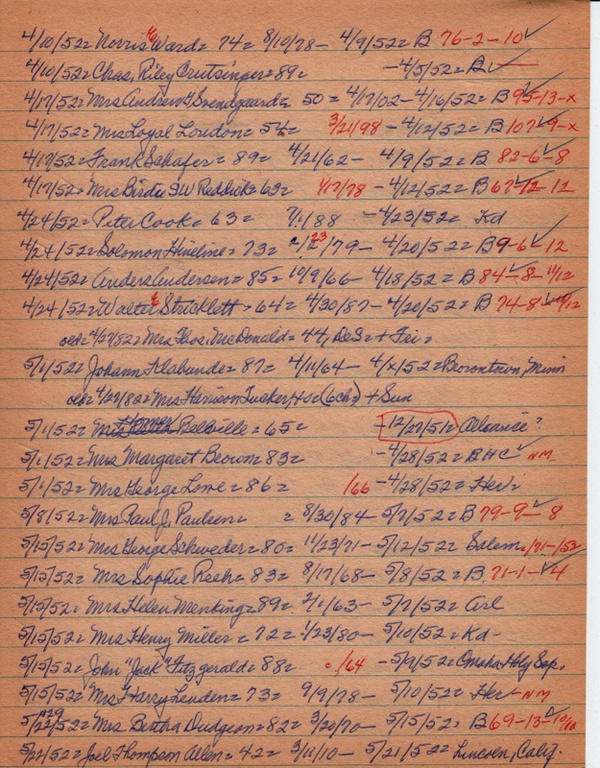 4/10/52 = Norris E Ward = 74 = 8/10/78 - 4/9/52 = B 76-2-10
4/10/52 = Chas. Riley Crutsinger = 89 = - 4/5/52 = B
4/17/52 = Mrs Andrew H Svendgaard = 50 = 4/17/02 - 4/16/52 = B 95-13-x
4/17/52 = Mrs Loyal London = 54 = 3/21/98 - 4/12/52 = B 107-9-x
4/17/52 = Frank Schafer = 89 = 4/21/62 - 4/9/52 = B 82-6-8
4/17/52 = Mrs Birdie SW Reddick = 63 = 1/17/78 - 4/12/52 = B 67-12-12
4/24/52 = Peter Cook = 63 = 7/1/88 - 4/23/52 = Kd
4/24/52 = Solomon Hineline = 73 = /23/79 - 4/20/52 = B 9-6-12
4/24/52 = Anders Andersen = 85 = 10/9/66 - 4/18/52 = B 84-8-11/12
4/24/52 = Walter E Stricklett = 64 = 4/30/87 - 4/20/52 = B 74-8-11/12
4/27/82 = Mrs Flos. McDonald = 44, DeS = + Fri =
5/1/52 = Johann Klabunde = 87 = 4/11/64 - 4/x/52 = Minn
4/27/82 = Mrs Harrison Tucker, (6ch) + Sun
5/1/52 = Mrs Belville = 65 = - 12/27/51 = Alliance?
5/1/52 = Mrs. Margaret Brown = 83 = - 4/28/52 = BHC NM
5/1/52 = Mrs George Lowe = 86 = /66 - 4/28/52 = Her =
5/8/52 = Mrs Paul J. Paulsen = = 8/30/84 - 5/7/52 = B 79-9-8
5/15/52 = Mrs George Schweder = 80 = 11/23/71 - 5/12/52 = Salem /71-/52
5/15/52 = Mrs Sophie Reeh = 83 = 8/17/68 - 5/8/52 = B. 71-1-4
5/15/52 = Mrs Helen Menking = 89 = 2/1/63 - 5/7/52 = Arl
5/15/52 = Mrs Henry Miller = 72 = 1/23/80 - 5/10/52 = Kd -
5/15/52 = John "Jack" Fitzgerald = 88 = /64 - 5/9/52 = Omaha Holy Sep.
5/15/52 = Mrs Harry Leuden = 73 = 9/9/78 - 5/10/52 = Her - NM
5/22/52 = Mrs Bertha Dudgeon = 82 = 3/20/70 - 5/15/52 = B 69-13-10/10
5/24/52 = Joel Thompson Allen = 42 = 3/11/10 - 5/21/52 = Lincoln, Calif.